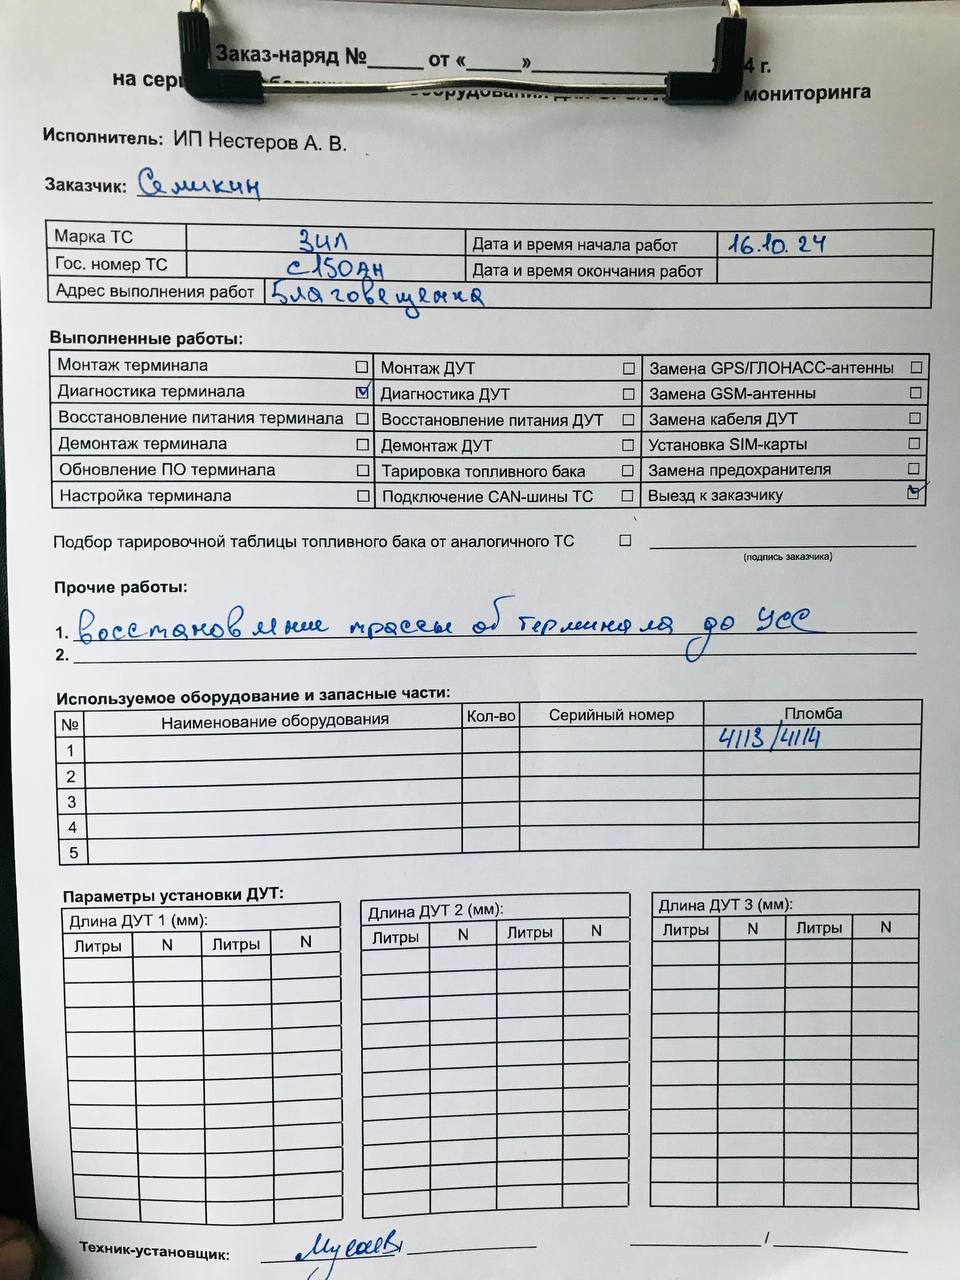 Заказ-наряд №_____ от «_____»________________ 4 г.
на мониторинга
Исполнитель: ИП Нестеров А. В.
Заказчик: Семикин
Марка ТС ЗИЛ Дата и время начала работ 16.10.24
Гос. номер ТС с150ан Дата и время окончания работ
Адрес выполнения работ Благовещенка
Выполненные работы:
Монтаж терминала ☐ Монтаж ДУТ ☐ Замена GPS/ГЛОНАСС-антенны ☐
Диагностика терминала ☑ Диагностика ДУТ ☐ Замена GSM-антенны ☐
Восстановление питания терминала ☐ Восстановление питания ДУТ ☐ Замена кабеля ДУТ ☐
Демонтаж терминала ☐ Демонтаж ДУТ ☐ Установка SIM-карты ☐
Обновление ПО терминала ☐ Тарировка топливного бака ☐ Замена предохранителя ☐
Настройка терминала ☐ Подключение CAN-шины ТС ☐ Выезд к заказчику ☑
Подбор тарировочной таблицы топливного бака от аналогичного ТС ☐
(подпись заказчика)
Прочие работы:
1. восстановление трассы от терминала до УСС
2.
Используемое оборудование и запасные части:
№ Наименование оборудования Кол-во Серийный номер Пломба
1 4113/4114
2
3
4
5
Параметры установки ДУТ:
Длина ДУТ 1 (мм): Длина ДУТ 2 (мм): Длина ДУТ 3 (мм):
Литры N Литры N Литры N Литры N Литры N Литры N
Техник-установщик: Мусаев / /